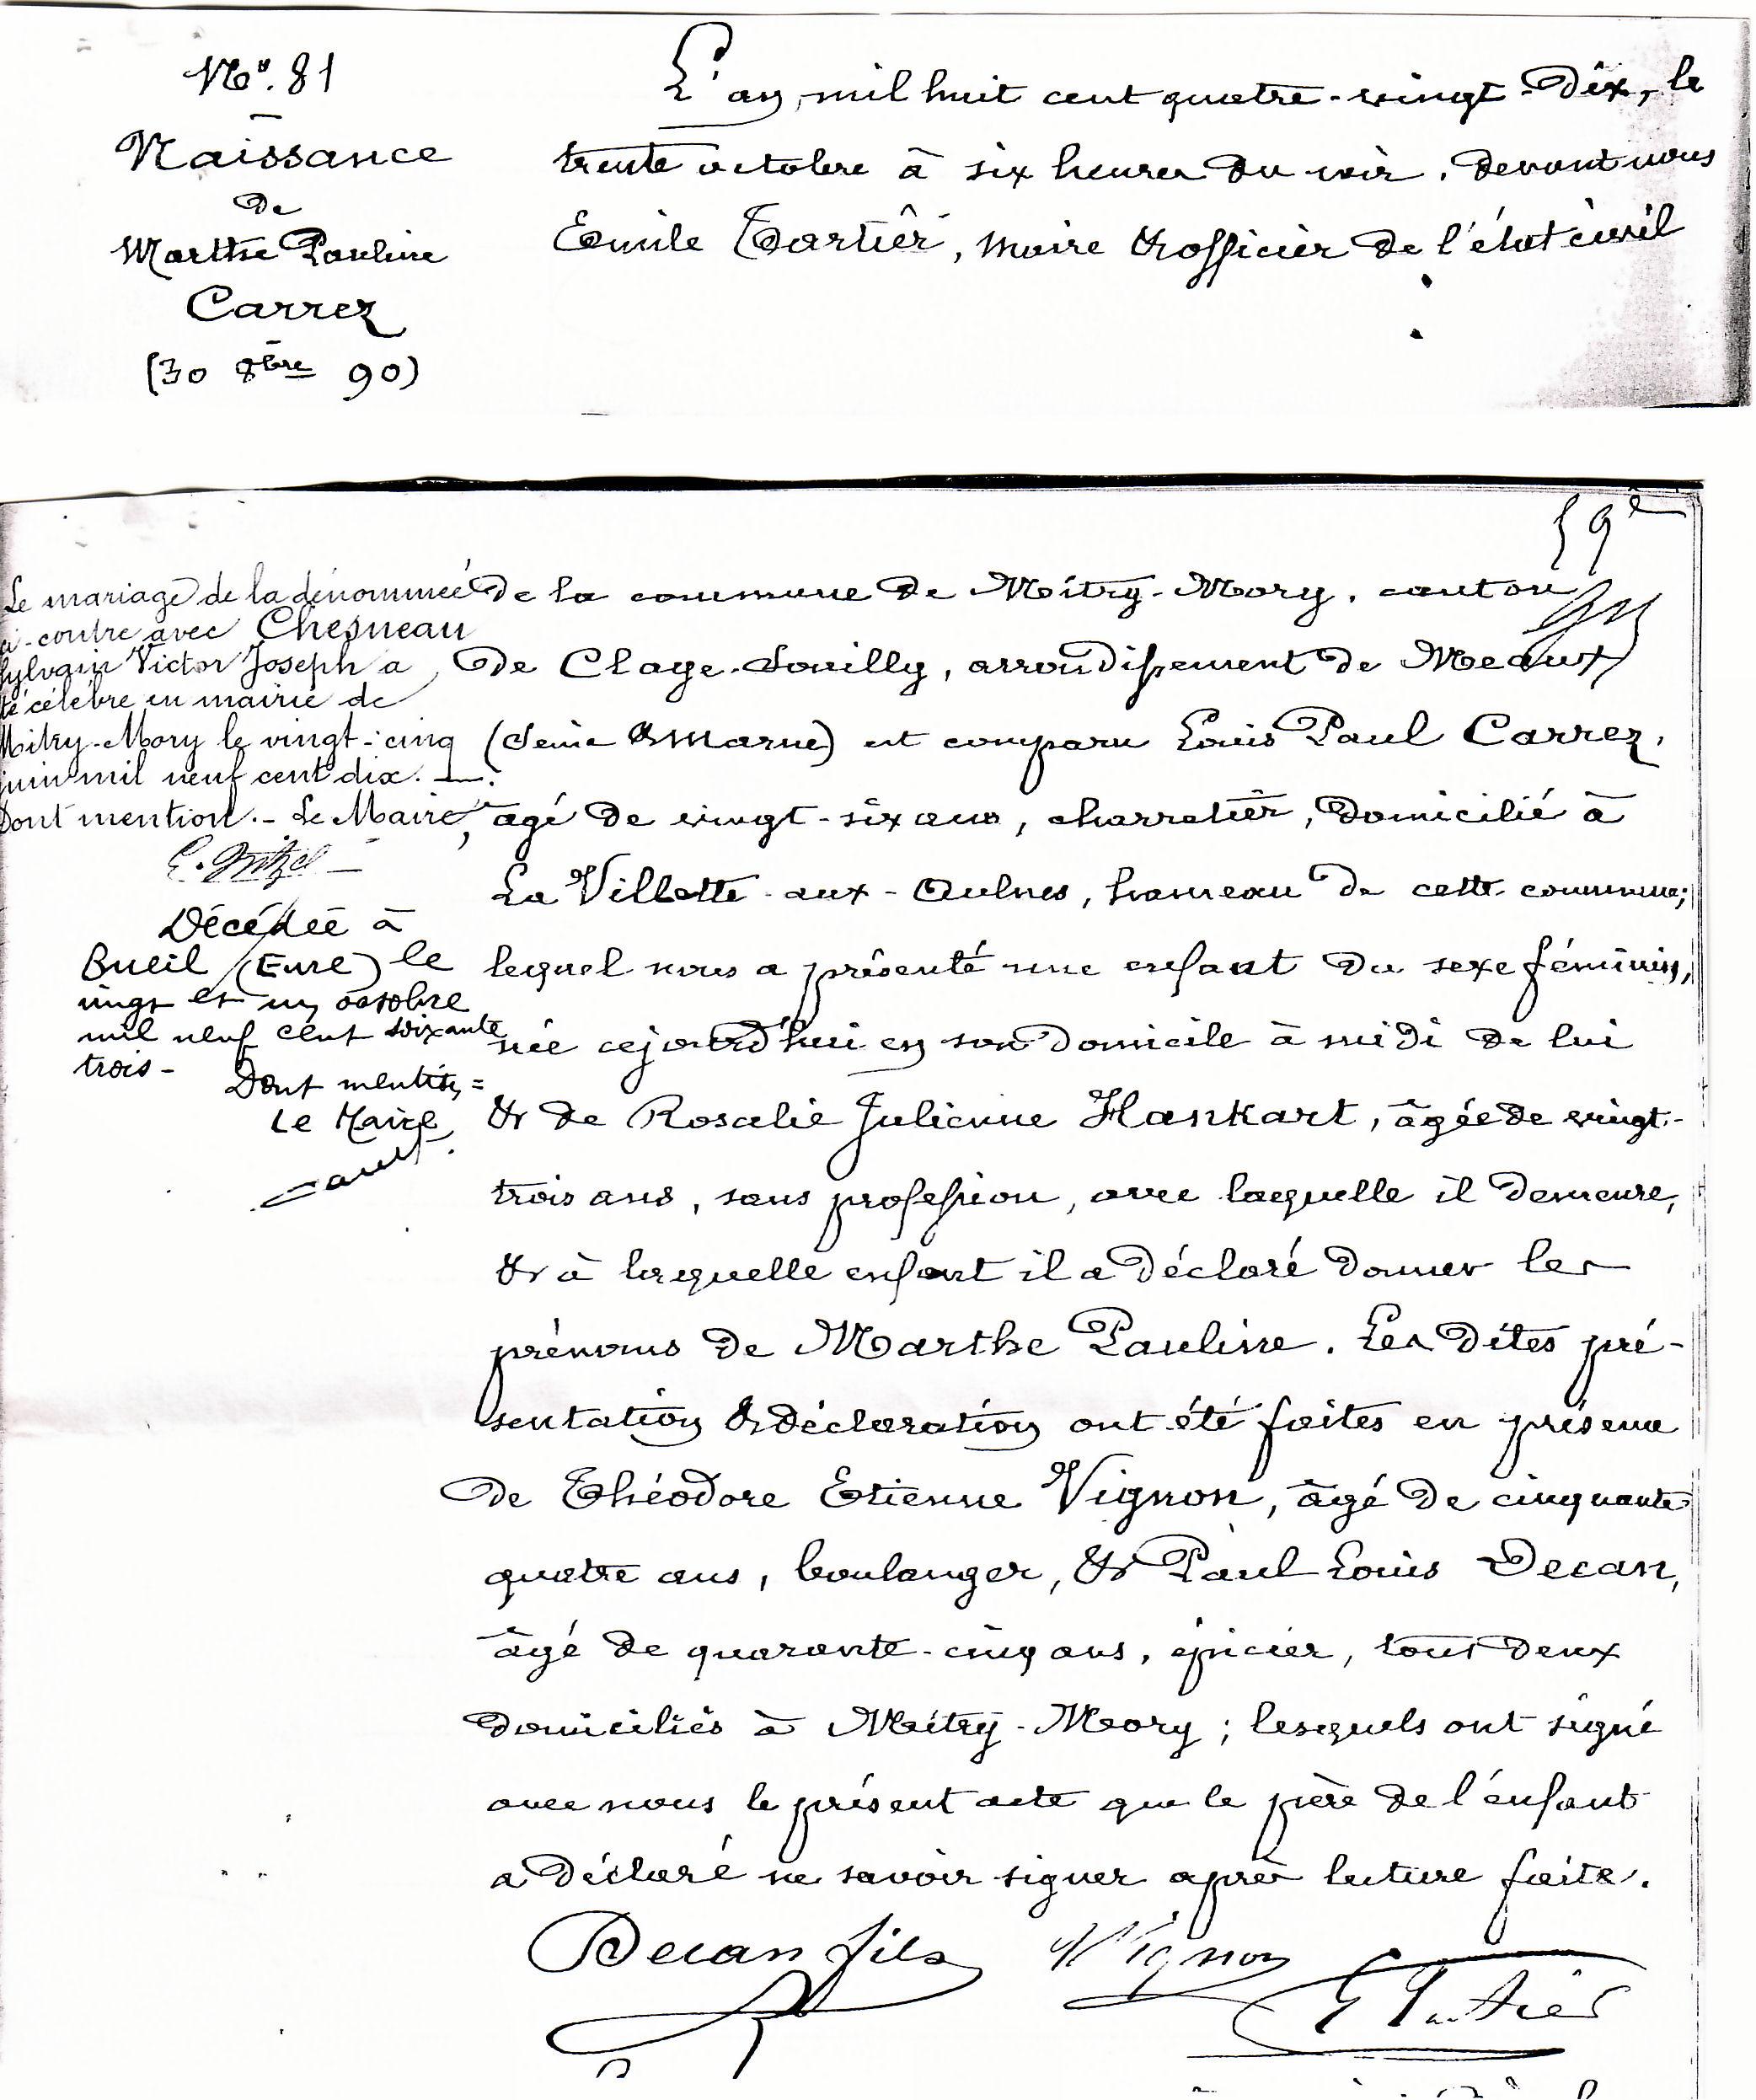 N°. 81
Naissance
de
Marthe Pauline
Carrez
(30 8bre 90)
L'an mil huit cent quatre-vingt-dix, le
trente octobre à six heures du soir, devant nous
Emile Tartier, maire & officier de l'état civil
59e
Le mariage de la dénommée
ci-contre avec Chesneau
Sylvain Victor Joseph a
été célébré en mairie de
Mitry-Mory le vingt-cinq
juin mil neuf cent dix.
Dont mention. - Le Maire,
Décédée à
Bueil (Eure) le
vingt et un octobre
mil neuf cent soixante
trois -
Dont mention =
Le Maire
de la commune de Mitry-Mory, canton
de Claye-Souilly, arrondissement de Meaux
(Seine & Marne) est comparu Louis Paul Carrez,
âgé de vingt-six ans, charretier, domicilié à
La Villette-aux-Aulnes, hameau de cette commune;
lequel nous a présenté une enfant du sexe féminin,
née cejourd'hui en son domicile à midi de lui
& de Rosalie Julienne Hankart, âgée de vingt-
trois ans, sans profession, avec laquelle il demeure,
& à laquelle enfant il a déclaré donner les
prénoms de Marthe Pauline. Les dites pré-
sentation & déclaration ont été faites en présence
de Théodore Etienne Vignon, âgé de cinquante
quatre ans, boulanger, & Paul Louis Decan,
âgé de quarante-cinq ans, épicier, tous deux
domiciliés à Mitry-Mory; lesquels ont signé
avec nous le présent acte que le père de l'enfant
a déclaré ne savoir signer après lecture faite.
Decan fils Vignon E Tartier